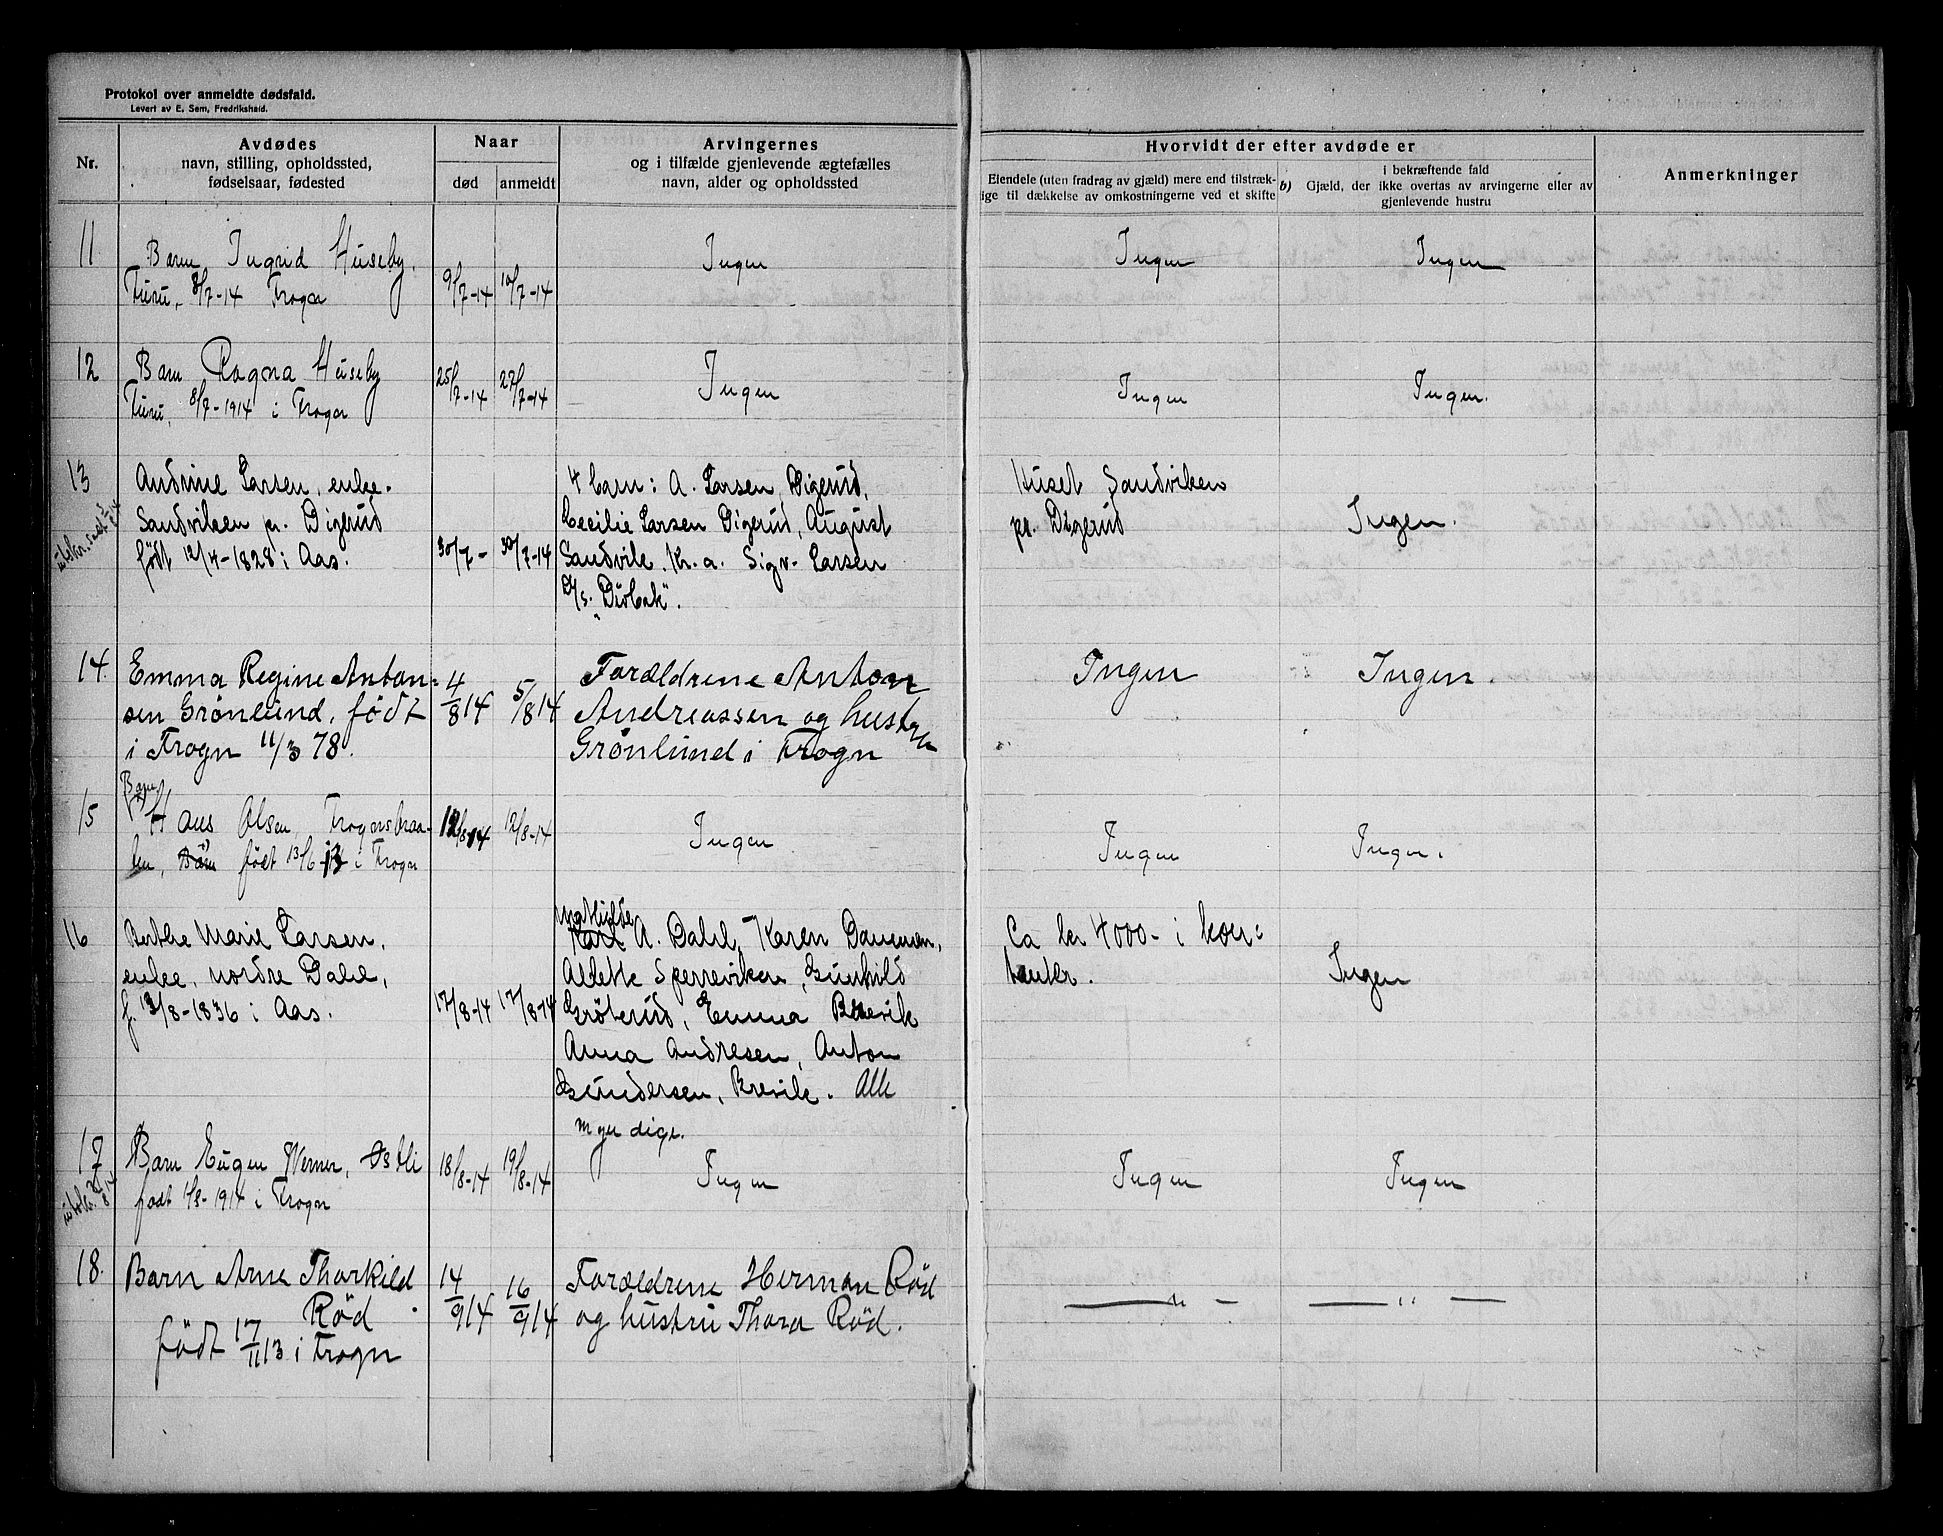 Protokol over anmeldte dødsfald.
Levert av E. Sem, Fredrikshald.
Nr.
Avdødes
navn, stilling, opholdssted,
fødselsaar, fødested
Naar
død
anmeldt
Arvingernes
og i tilfælde gjenlevende ægtefælles
navn, alder og opholdssted
Hvorvidt der efter avdøde er
Eiendele (uten fradrag av gjæld) mere end tilstræk-
ige til dækkelse av omkostningerne ved et skifte
i bekræftende fald
b) Gjæld, der ikke overtas av arvingerne eller av
gjenlevende hustru
Anmerkninger
11
Barn Ingrid Huseby.
Furu, 8/7-14 Frogn
9/7-14
10/7-14
Ingen
Ingen
Ingen
12
Barn Ragna Huseby
Furu, 8/7-1914 i Frogn
25/7-14
27/7-14
Ingen
Ingen
Ingen.
13
Andrine Larsen, enke.
Sandviken pr. Digerud
født 12/4-1828 i Aas.
30/7-
30/7-14
4 barn: A. Larsen, Digerud,
Cecilie Larsen Digerud, August
Sandvik, Kr.a. Sigv. Larsen
D/s. "Drøbak".
Huset Sandviken
pr. Digerud
Ingen.
14.
Emma Regine Anton-
sen Grønlund, født
i Frogn 11/3 78.
4/8 14
5/8 14
Forældrene Anton
Andreassen og hustru
Grønlund i Frogn
Ingen
Ingen.
15
Barn
Hans Olsen, Frognsbraa-
ten, Barn født 13/6-13 i Frogn
12/8-14
12/8-14
Ingen
Ingen
Ingen.
16
Berthe Marie Larsen,
enke, nordre Dahl,
f. 13/8-1836 i Aas.
17/8-14
17/8-14
Mathilde
Karl A. Dahl, Karen Dammen,
Aldette Sperreviken, Gunhild
Grøterud, Emma Brevik
Anna Andresen, Anton
Gundersen, Brevik. Alle
myndige.
Ca kr 4000- i kon-
tanter.
Ingen
17
Barn Eugen Werner, Østli
født 1/8-1914 i Frogn
18/8-14
19/8-14
Ingen
Ingen
Ingen
18.
Barn Arne Thorkild
Rød.
født 17/11 13 i Frogn
14/9 14
16/9 14
Forældrene Herman Rød
og hustru Thora Rød.
— " —
— " —